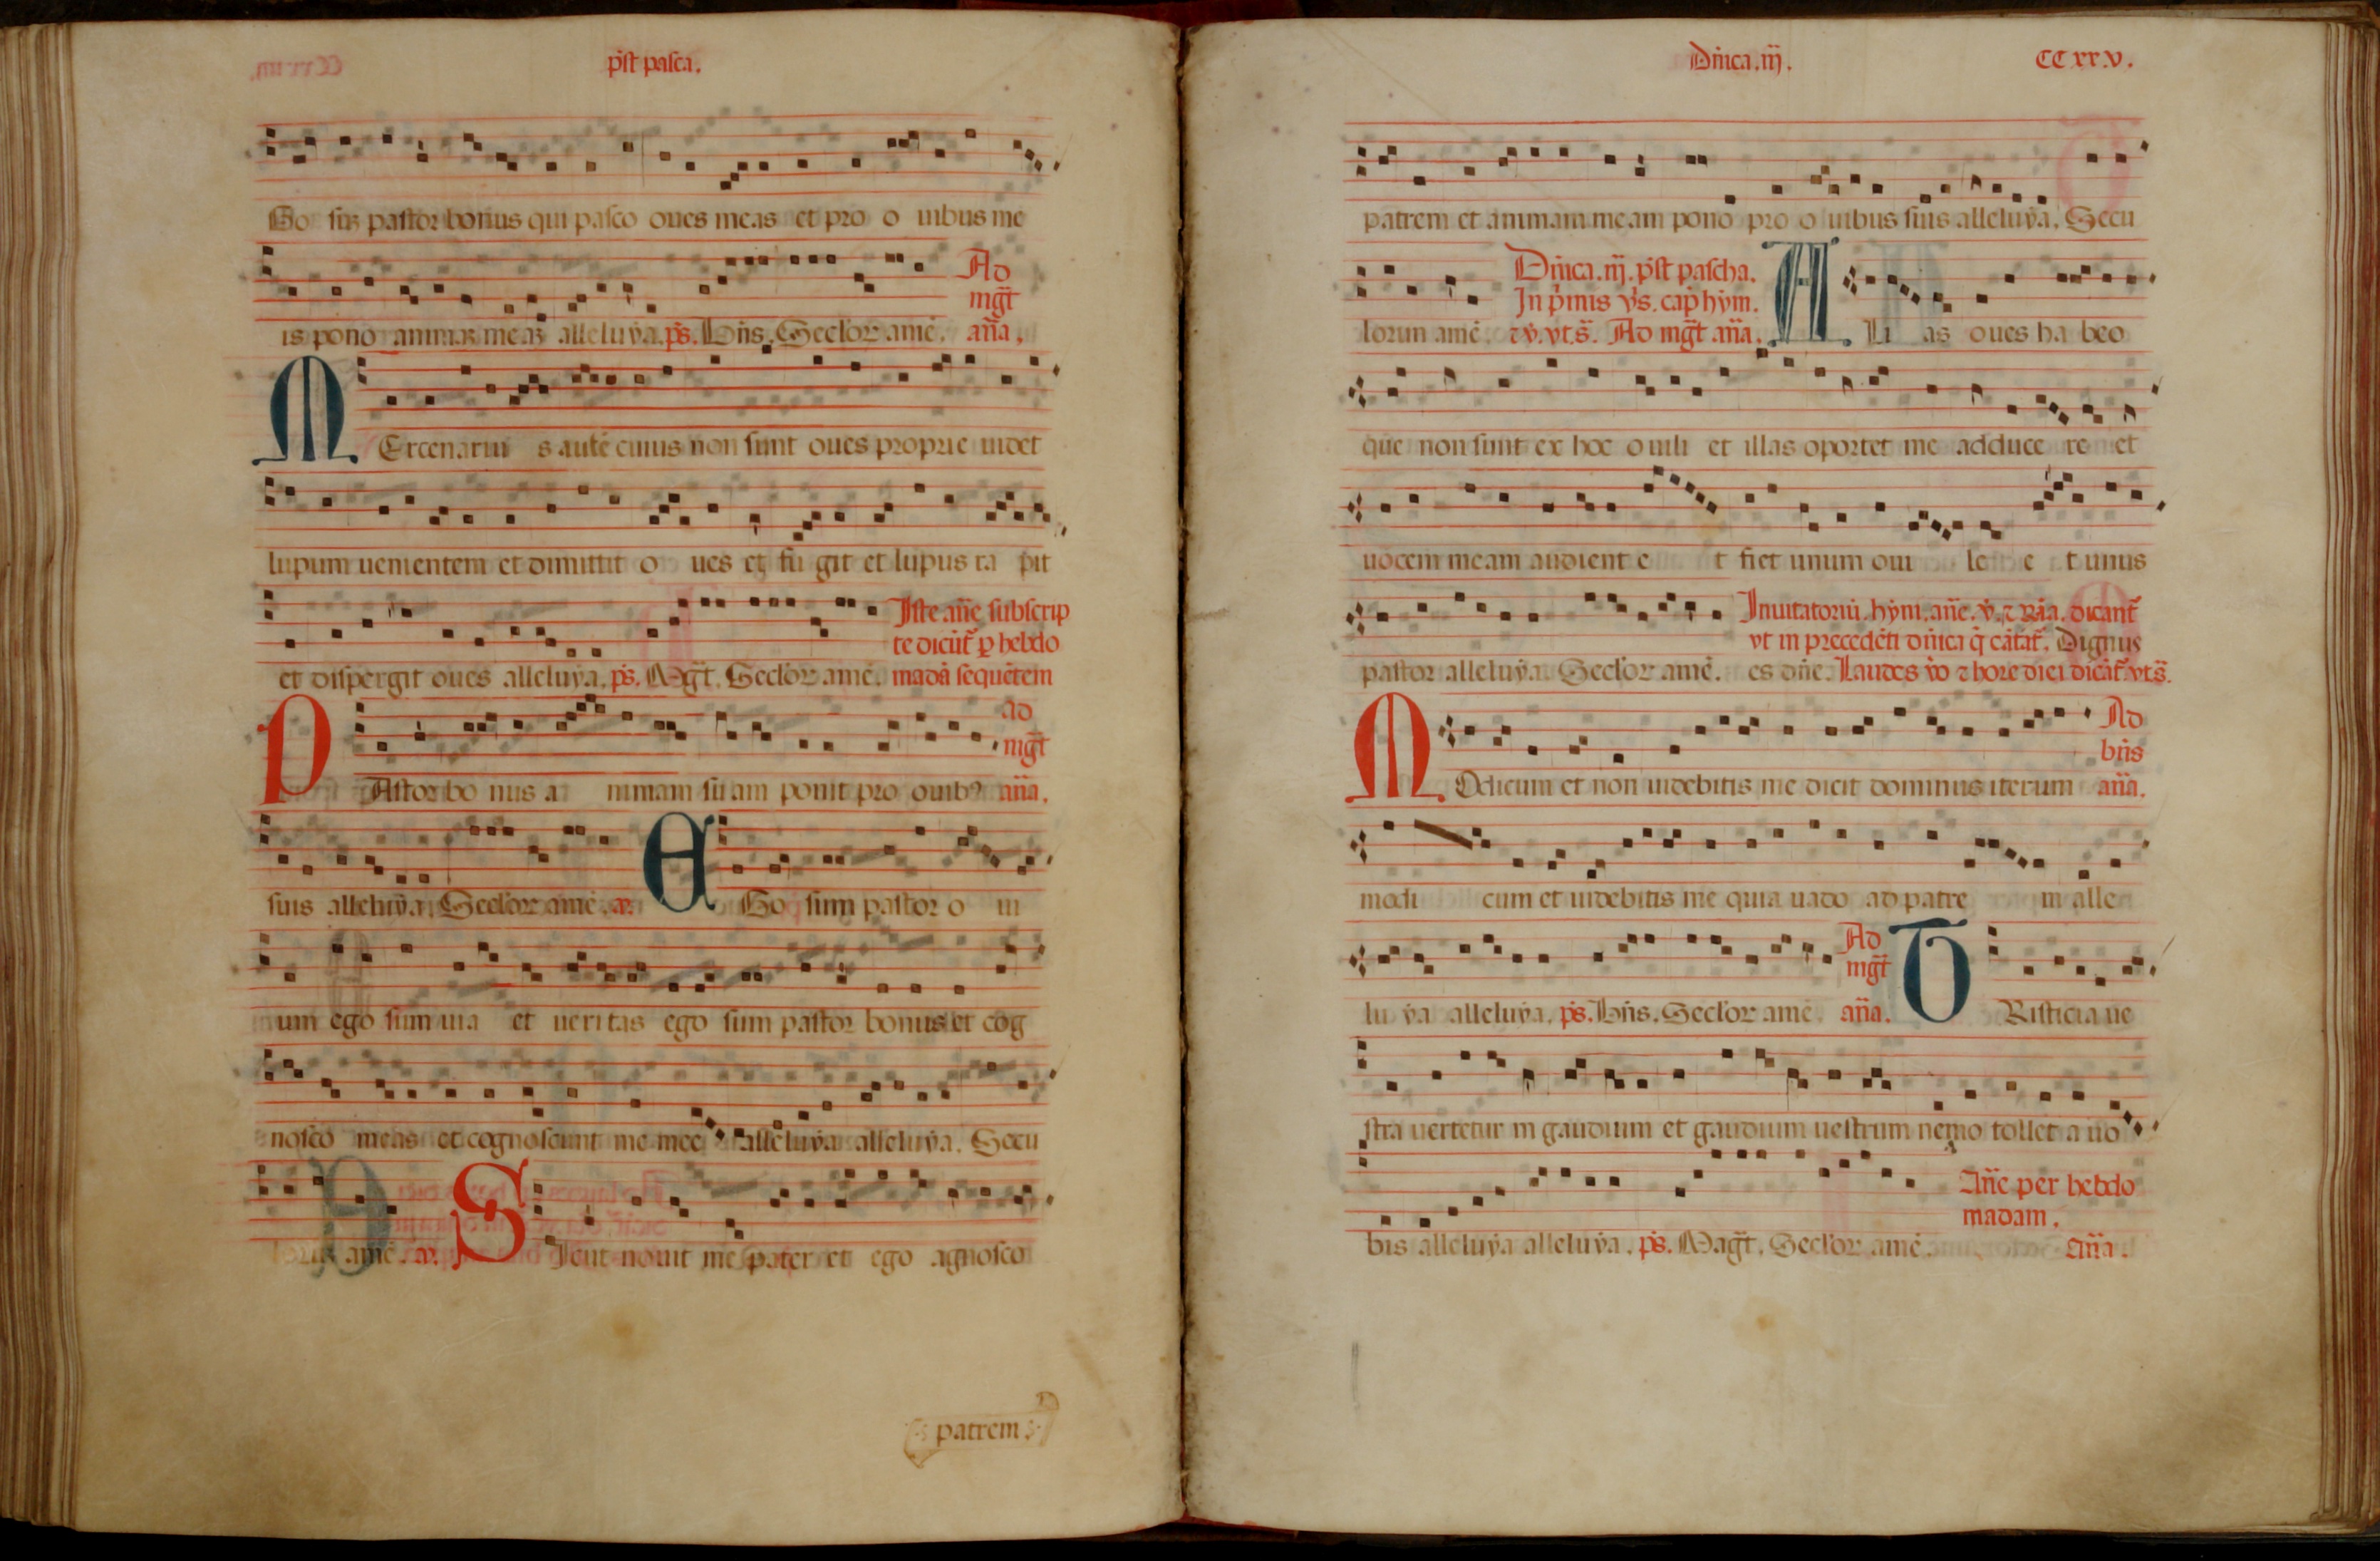 pſt paſca.
Go ſuꝫ paſtor bonus qui paſco oues meas et pro o uibus me
is pono animaꝫ meaꝫ alleluÿa. ps. Bñs. Secl'or amē.
Ad
mḡt
aña.
M Ercenariu s autē cuius non ſunt oues proprie uidet
lupum uenientem et dimittit o ues et fu git et lupus ra pit
et diſpergit oues alleluÿa. ps. Mḡt. Secl'or amē.
Iſte añe ſubſcrip
te dicūt ꝑ hebdo
madā ſequētem
P Aſtor bo nus a nimam ſu am ponit pro ouibꝰ
ad
mḡt
aña.
ſuis alleluÿa. Secl'or amē. E Go ſum paſtor o ui
um ego ſum uia et ueritas ego ſum paſtor bonus et cog
noſco meas et cognoſcunt me mee alleluÿa alleluÿa. Secu
loruꝫ amē. S Icut nouit me pater et ego agnoſco
patrem
Dñica. iij.
CC xx v.
patrem et animam meam pono pro o uibus ſuis alleluÿa. Secu
Dñica. iij. pſt paſcha.
In pimis vs. cap hym.
lorum amē. ⁊ v. vt s. Ad mḡt aña. A Li as oues ha beo
que non ſunt ex hoc ouili et illas oportet me adduce re et
uocem meam audient e t fiet unum oui le e t unus
Inuitatoriū. hym. añe. v. ⁊ Rĩa. dicant
vt in precedēti dñica q̄ cātat. Dignus
paſtor alleluÿa. Secl'or amē. es dñe. Laudes vo ⁊ hore diei dicāt vt s.
M Odicum et non uidebitis me dicit dominus iterum
Ad
bñs
aña.
modi cum et uidebitis me quia uado ad patre m alle
lu ÿa alleluÿa. ps. Bñs. Secl'or amē.
Ad
mḡt
aña.
T Riſticia ue
ſtra uertetur in gaudium et gaudium ueſtrum nemo tollet a uo
bis alleluÿa alleluÿa. ps. Maḡt. Secl'or amē.
Añe per hebdo
madam.
Aña.